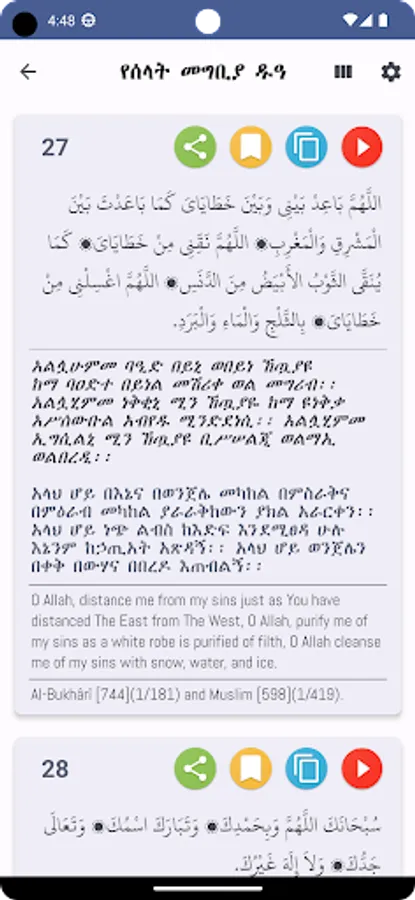 4:48
የሰላት መግቢያ ዱዓ
27
اللَّهُمَّ بَاعِدْ بَيْنِي وَبَيْنَ خَطَايَايَ كَمَا بَاعَدْتَ بَيْنَ
الْمَشْرِقِ وَالْمَغْرِبِ اللَّهُمَّ نَقِّنِي مِنْ خَطَايَايَ كَمَا
يُنَقَّى الثَّوْبُ الأَبْيَضُ مِنَ الدَّنَسِ اللَّهُمَّ اغْسِلْنِي مِنْ
خَطَايَايَ بِالثَّلْجِ وَالْمَاءِ وَالْبَرَدِ.
አልሏሁምመ ባዒድ በይኒ ወበይነ ኸጧያዩ
ከማ ባዐድተ በይነል መሽሪቀ ወል መግሪብ፡፡
አልሏሂምመ ነቅቂኒ ሚን ኸጧያዬ ከማ ዩነቅቃ
አሥሰውቡል አብየዱ ሚንድደነሲ፡፡ አልሏሂምመ
ኢግሲልኒ ሚን ኸጧያዩ ቢሥሠልጂ ወልማኢ
ወልበረዲ፡፡
አላህ ሆይ በእኔና በወንጀሌ መካከል በምስራቅና
በምዕራብ መካከል ያራራቅከውን ያክል አራርቀን፡፡
አላህ ሆይ ነጭ ልብስ ከእድፍ እንደሚፀዳ ሁሉ
እኔንም ከኃጢአት አጽዳኝ፡፡ አላህ ሆይ ወንጀሌን
በቀቅ በውሃና በበረዶ እጠብልኝ፡፡
O Allah, distance me from my sins just as You have
distanced The East from The West, O Allah, purify me of
my sins as a white robe is purified of filth, O Allah cleanse
me of my sins with snow, water, and ice.
Al-Bukhârî [744](1/181) and Muslim [598](1/419).
28
سُبْحَانَكَ اللَّهُمَّ وَبِحَمْدِكَ وَتَبَارَكَ اسْمُكَ وَتَعَالَى
جَدُّكَ وَلاَ إِلَهَ غَيْرُكَ.